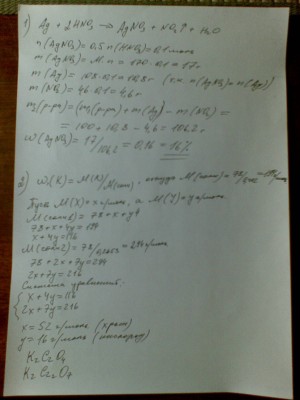 1) Ag + 2HNO₃ → AgNO₃ + NO₂↑ + H₂O
n(AgNO₃) = 0,5 n(HNO₃) = 0,1 моль
m(AgNO₃) = M·n = 170·0,1 = 17г
m(Ag) = 108·0,1 = 10,8г (т.к. n(AgNO₃) = n(Ag))
m(NO₂) = 46·0,1 = 4,6г
m₂(р-ра) = m₁(р-ра) + m(Ag) - m(NO₂) =
= 100 + 10,8 - 4,6 = 106,2г
w(AgNO₃) = 17/106,2 = 0,16 = 16%
2) w(K) = M(K)/M(соли), откуда M(соли) =
Пусть M(X) = x г/моль, а M(Y) = y г/моль.
M(соли1) = 78 + x + y4
78 + x + 4y = 194
x + 4y = 116
M(соли2) = 78/ = 294 г/моль
78 + 2x + 7y = 294
2x + 7y = 216
Система уравнений:
{ x + 4y = 116
2x + 7y = 216
x = 52 г/моль (хром)
y = 16 г/моль (кислород)
K₂CrO₄
K₂Cr₂O₇